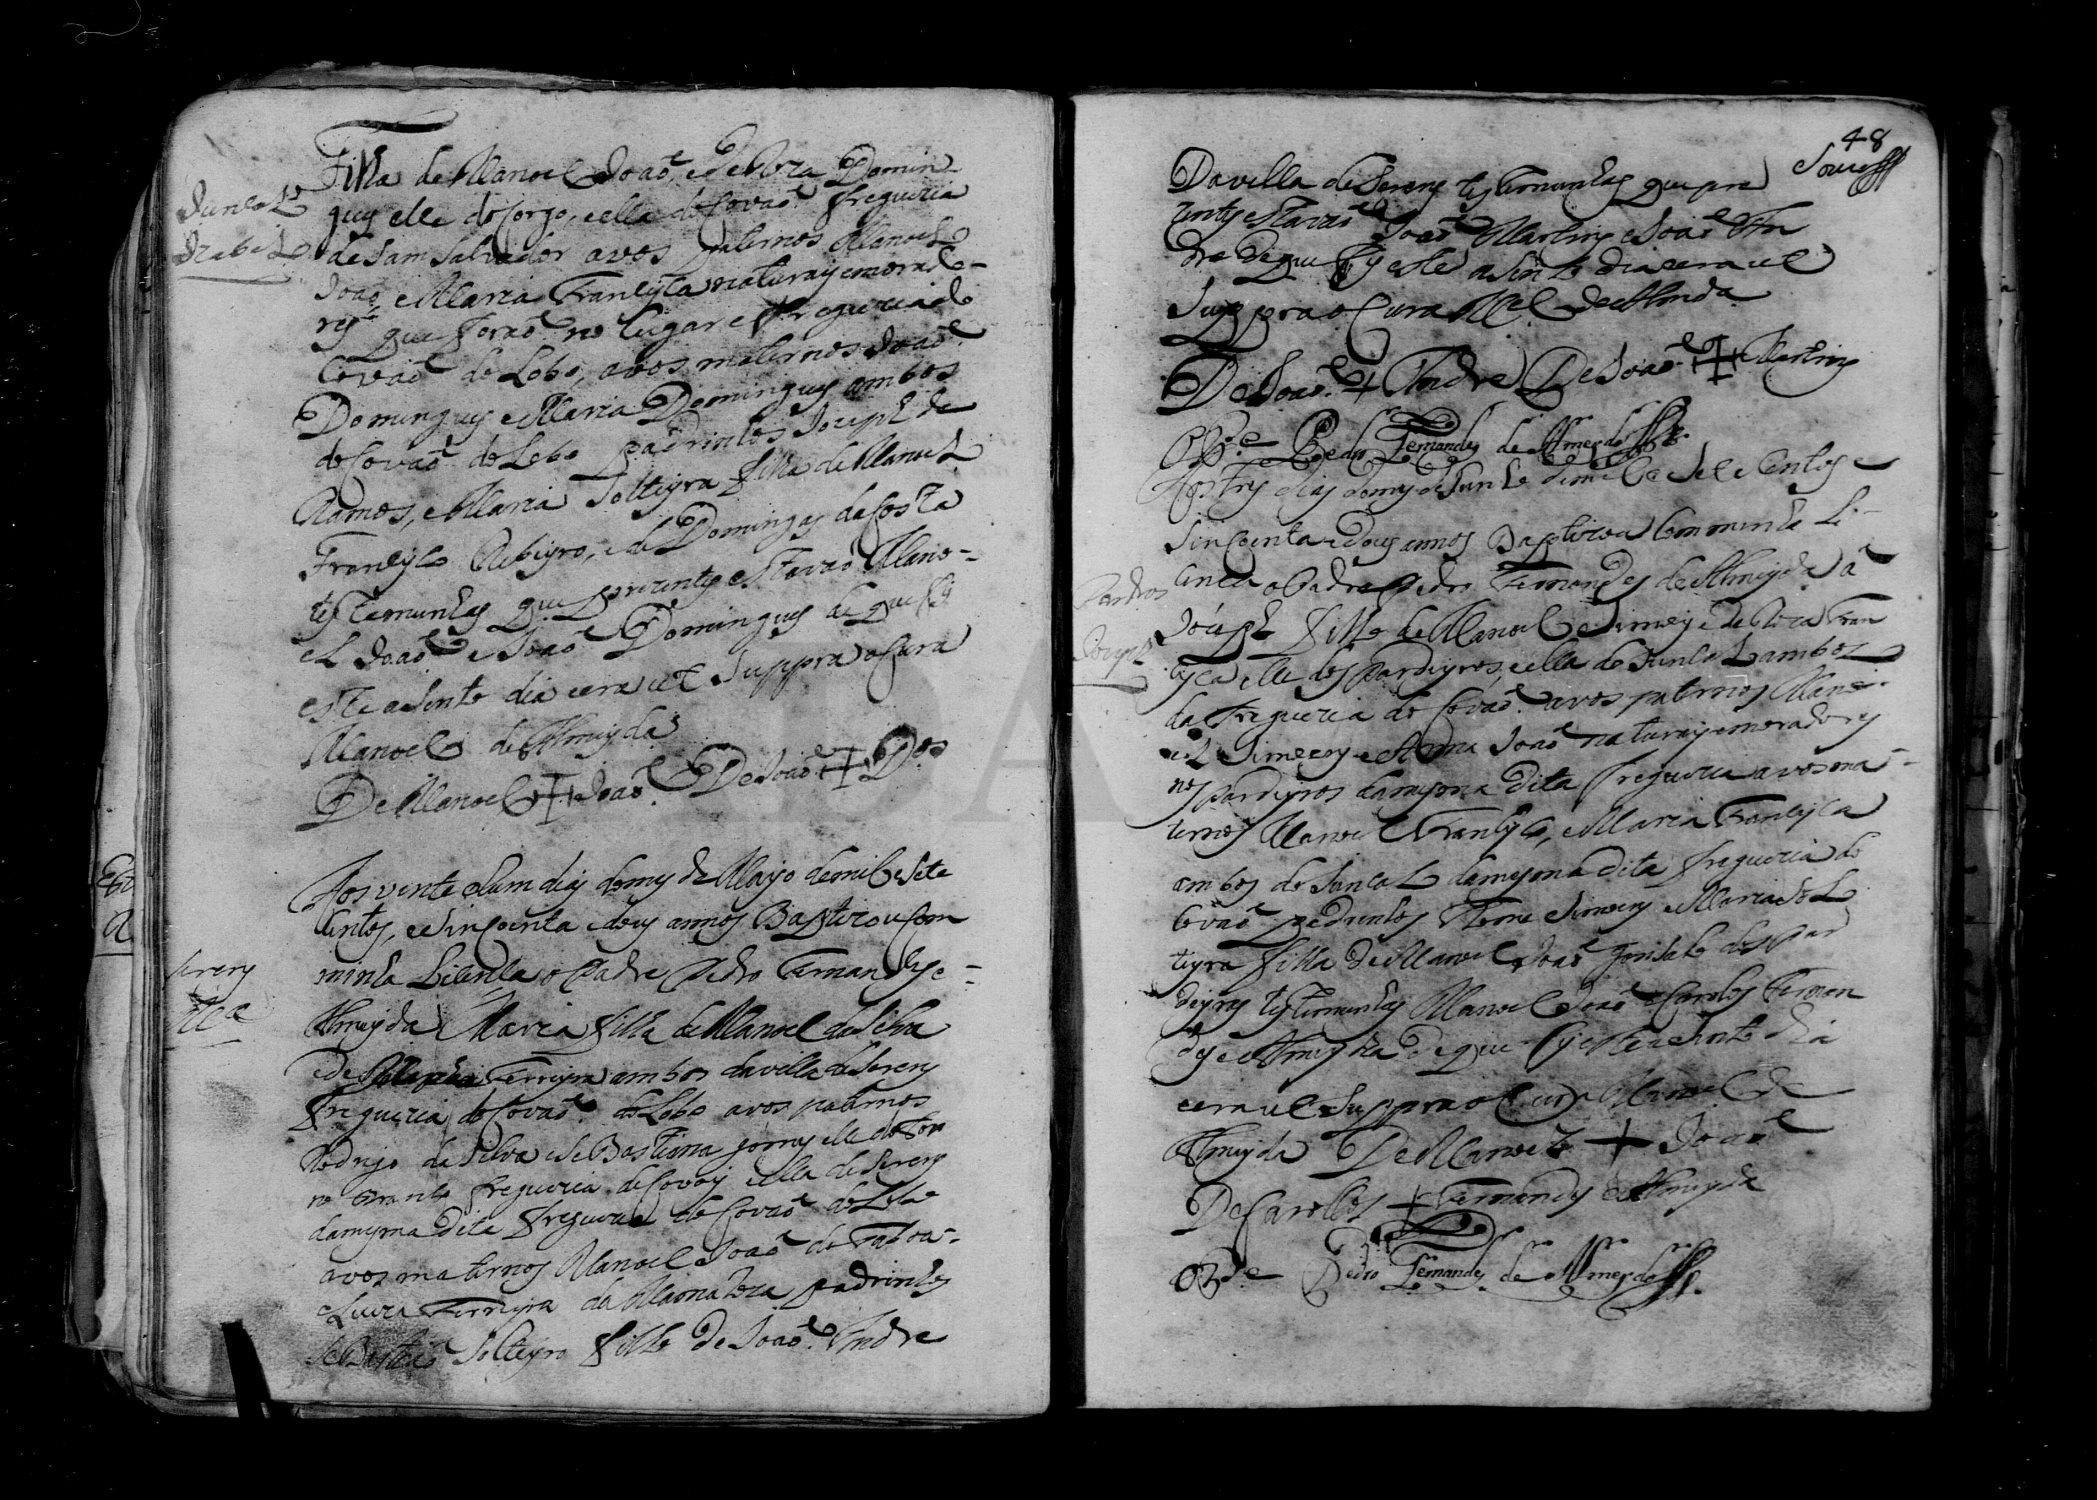 Juncal
Izabel
Filha de Manoel João, e de Roza Domin-
guys elle do Sorgo, e ella do Covaõ Freguezia
de Sam Salvador avos paternos Manoel
Joaõ e Maria Francysca naturays e morado-
rys que foraõ no lugar e Freguezia do
Covaõ do Lobo, avos maternos Joaõ
Domingues e Maria Domingues ambos
do Covaõ do Lobo padrinhos Joseph de
Ramos, e Maria solteyra filha de Manoel
Francysco Ribeyro, e de Domingas da Costa
testemunhas que prezentes estavaõ Mano-
el Joaõ e Joaõ Domingues de que fiz
este asento dia era ut suppra o Cura
Manoel de Almeyda
De Manoel + Joaõ De Joaõ + Dos
Aos vinte e hum dias do mes de Mayo de mil e sete
centos, e sincoenta e dous annos Baptizou com
minha licença o Padre Pedro Fernandes e
Serens
Ma
Almeyda Maria filha de Manoel da Silva
e de Ferreyra ambos da villa de Serens
Freguezia do Covaõ do Lobo avos paternos
Rodrigo da Silva e Bastiana elle do
Freguezia de ella de Serens
da mesma dita Freguezia do Covaõ do Lobo
avos maternos Manoel Joaõ de Taboa-
e Luiza Ferreyra da padrinhos
solteyro filho de Joaõ Andre
48
Da villa de Serens testemunhas que pre
zentes estavaõ Joaõ Martins e Joaõ An
dre de que fiz este asento dia era ut
suppra o Cura Mel de Almeyda
De Joaõ + Andre De Joaõ + Martins
O Pe Pedro Fernandes de Almeyda
Aos tres dias do mes de Junho de mil e sete centos e
sincoenta e dous annos Baptizou com minha li-
cença o Padre Pedro Fernandes de Almeyda a
Pardros
Joseph
Joseph filho de Manoel Simoes e de Roza Fran
cysca elle dos Pardeyros, e ella do Juncal ambos
da Freguezia do Covaõ avos paternos Mano-
el Simoens e Anna Joaõ naturays e moradores
nos Pardeyros da mesma dita Freguezia avos ma-
ternos Manoel Francysco, e Maria Francysca
ambos do Juncal da mesma dita Freguezia do
Covaõ padrinhos Thome Simoens e Maria sol
teyra filha de Manoel Joaõ dos Par
deyros testemunhas Manoel Joaõ e Carolos Fernan
des e Almeyda de que fiz este asento dia
e era ut suppra o Cura Manoel de
Almeyda De Manoel + Joaõ
De Carollos + Fernandes e Almeyda
O Pe Pedro Fernandes de Almeyda